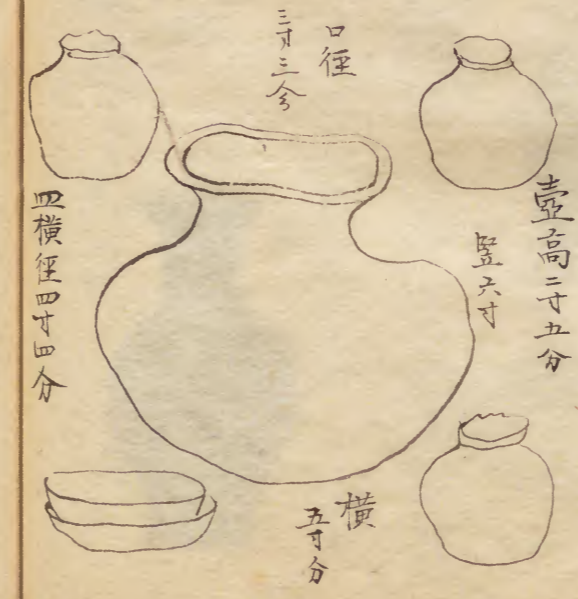 壺高二寸五分
竪六寸
口徑
三寸三分
橫
五寸分
皿橫徑四寸四分